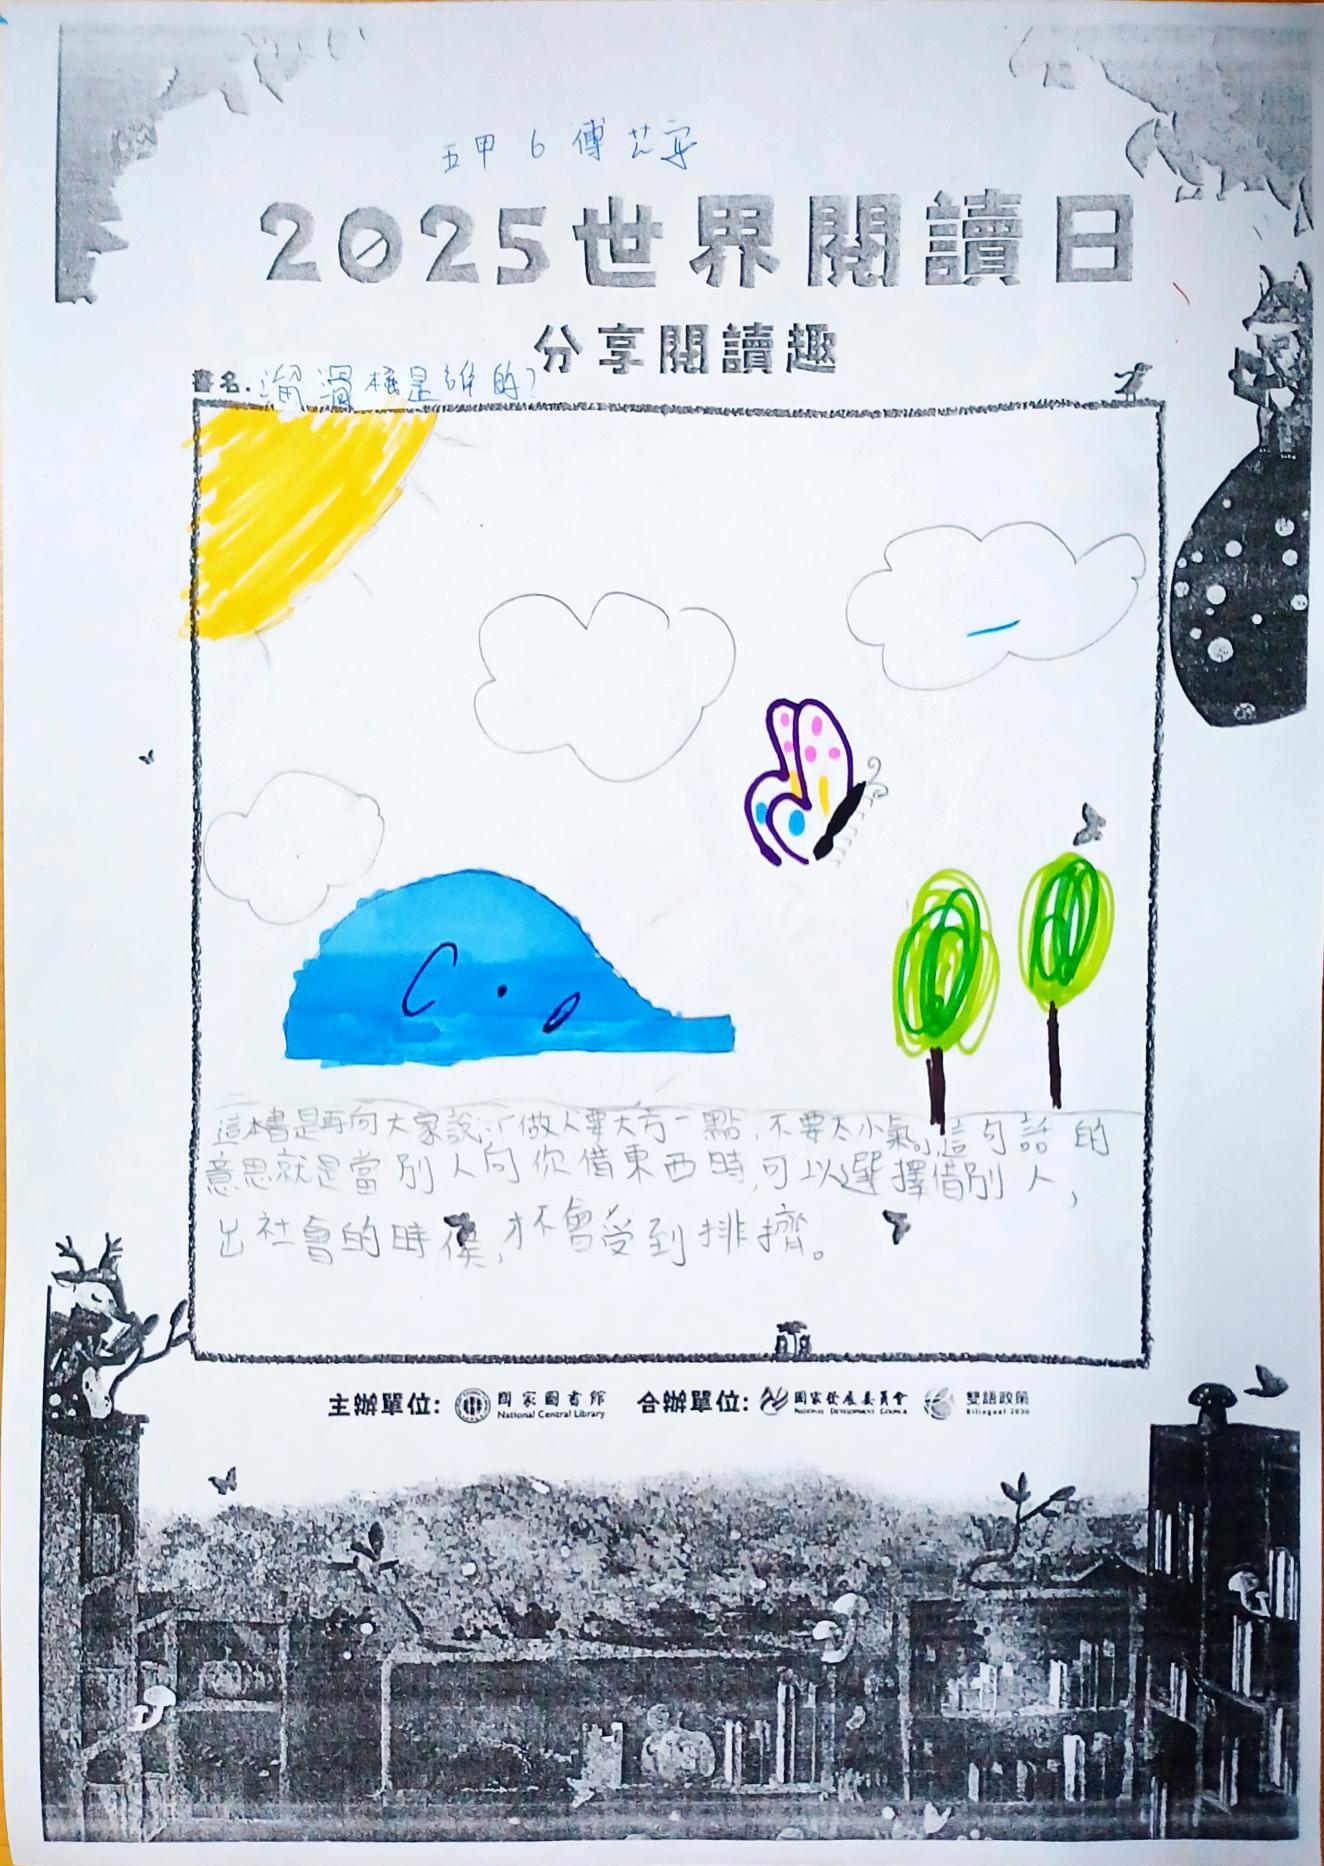 五甲 6 傅芸宇
2025世界閱讀日
分享閱讀趣
書名:溜滑梯是誰的?
這本書是再向大家說:「做人要大方一點,不要太小氣。」這句話的
意思就是當別人向你借東西時,可以選擇借別人,
出社會的時候,才不會受到排擠。
主辦單位: 國家圖書館 National Central Library 合辦單位: 國家發展委員會 National Development Council 雙語政策 Bilingual 2030